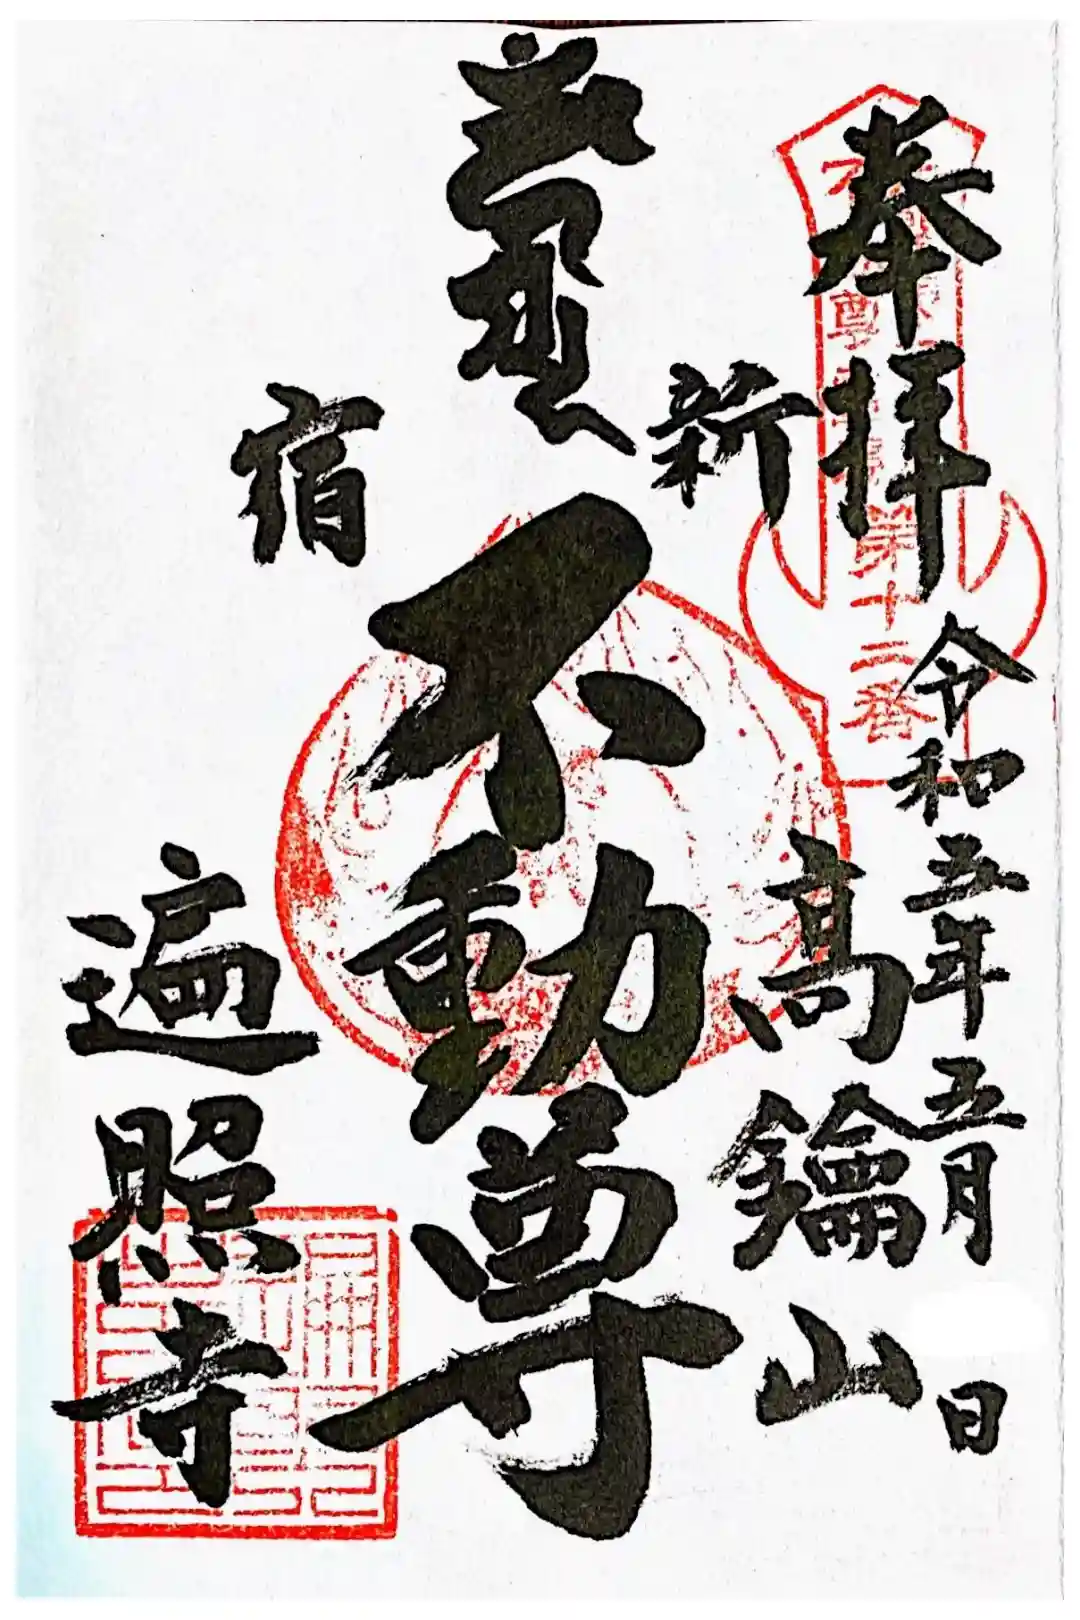 奉拝
令和五年五月 日
第十二番
新
宿
高鑰山
不動尊
遍照寺